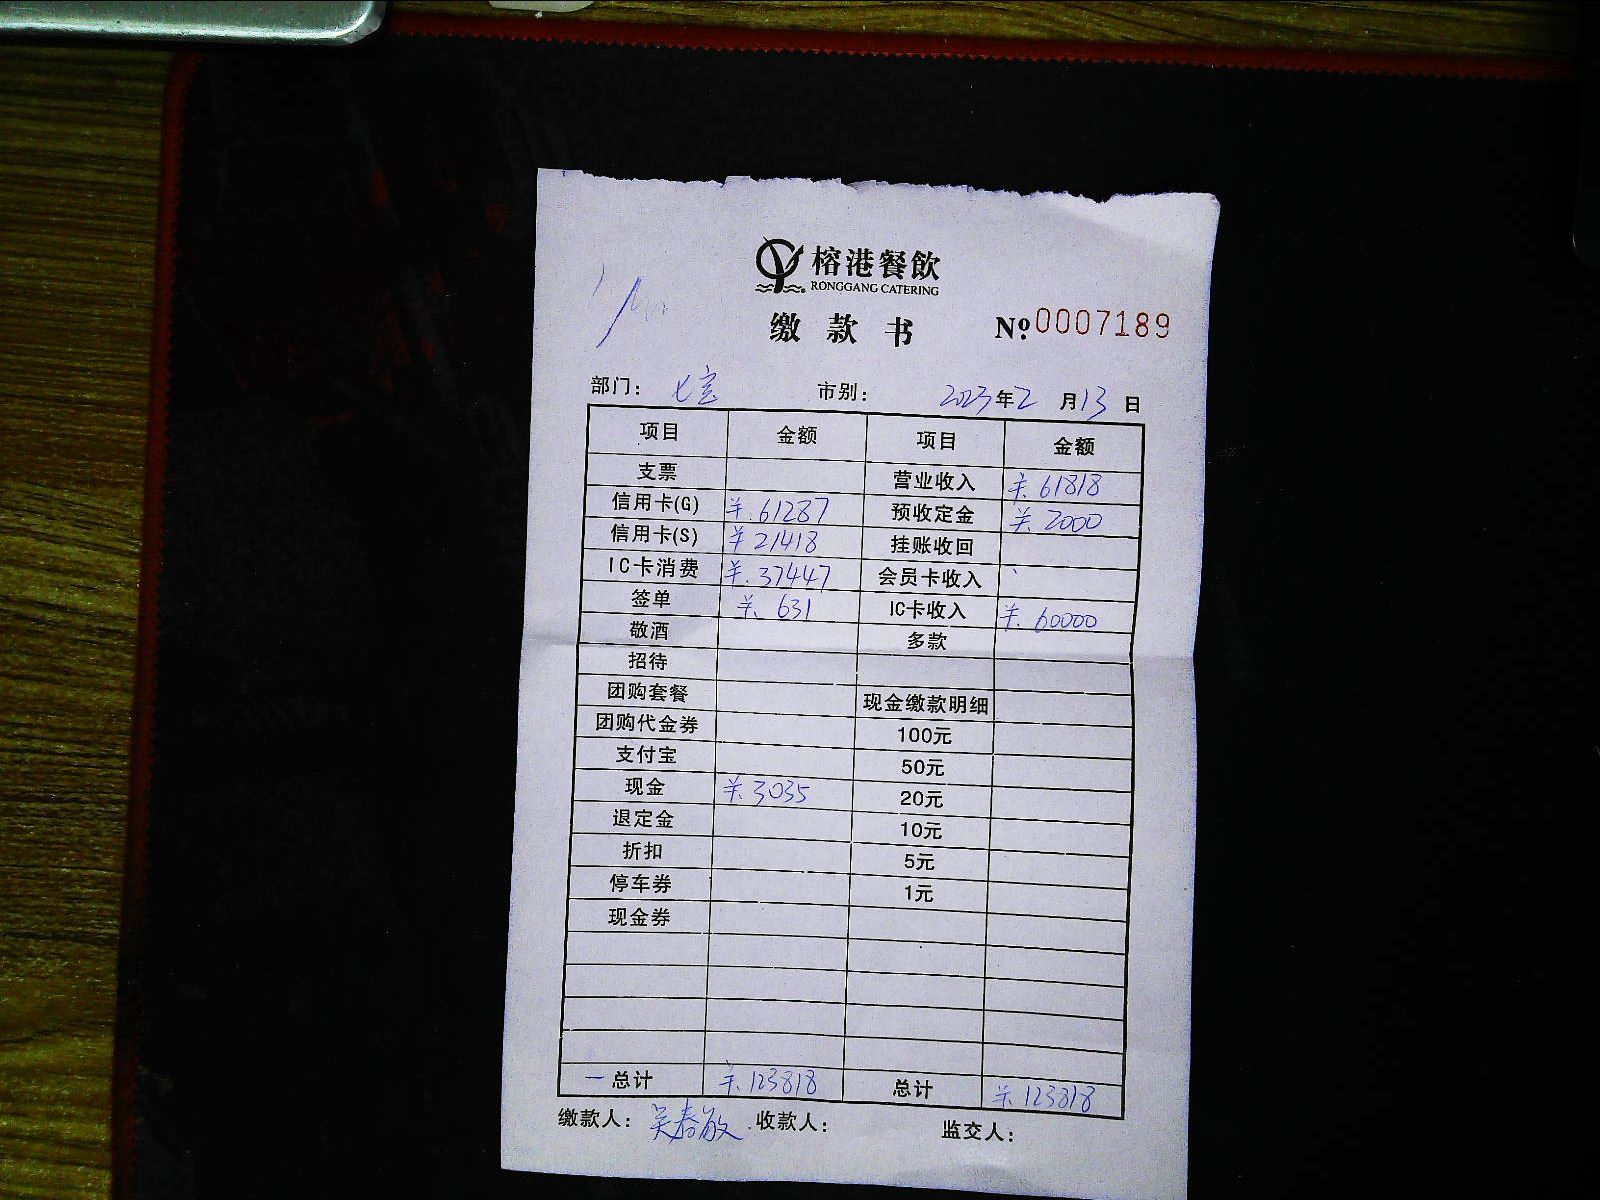 榕港餐飲
RONGGANG CATERING
缴款书 №.0007189
部门: 七宝 市别: 2023年2月13日
项目 金额 项目 金额
支票 营业收入 ¥.61818
信用卡(G) ¥.61287 预收定金 ¥.2000
信用卡(S) ¥21418 挂账收回
IC卡消费 ¥.37447 会员卡收入
签单 ¥.631 IC卡收入 ¥.60000
敬酒 多款
招待
团购套餐 现金缴款明细
团购代金券 100元
支付宝 50元
现金 ¥.3035 20元
退定金 10元
折扣 5元
停车券 1元
现金券
总计 ¥.123818 总计 ¥.123818
缴款人: 吴春敏 收款人: 监交人: